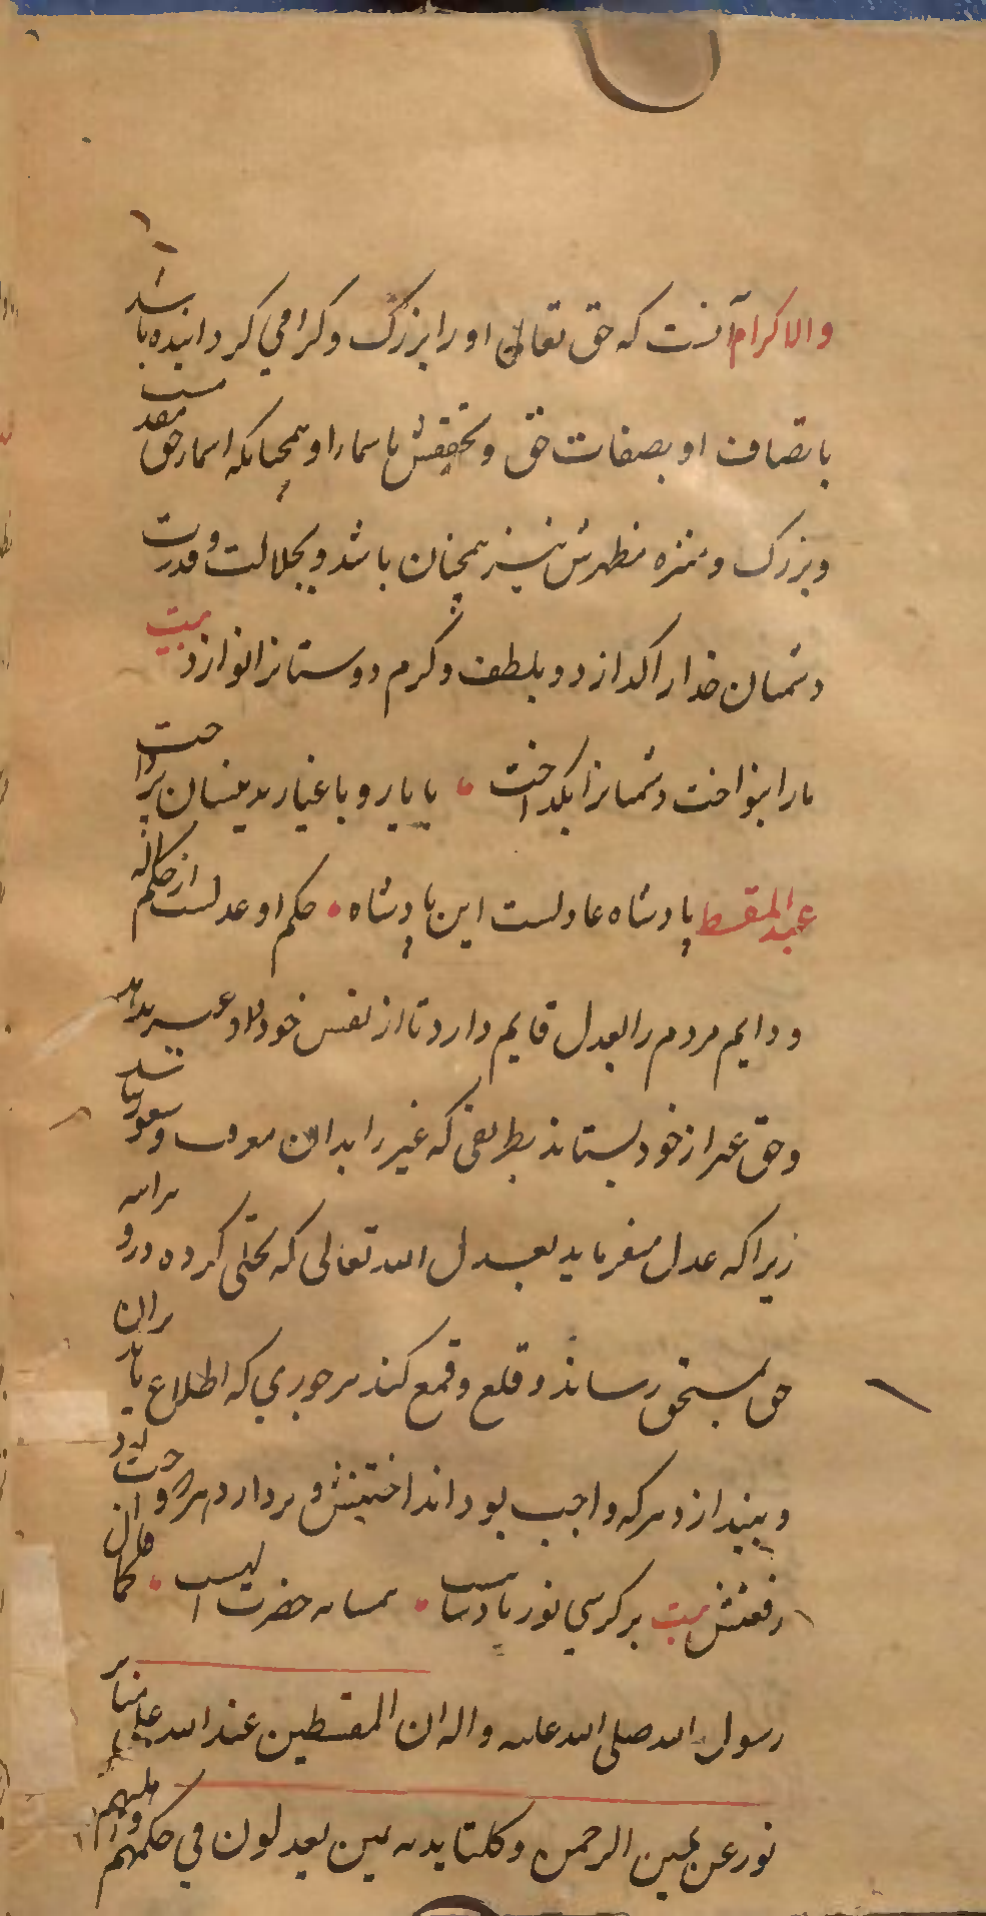 والاکرام آنست که حق تعالی او را بزرگ و کرامی کردانیده باشد
باتصاف او بصفات حق و تحققش باسماء او همچنانکه اسماء حق مقدست
و بزرک و منزه مظهرش نیز همچنان باشد و بجلالت و قدرت
دشمنان خدا را کدازد و بلطف و کرم دوستانرا نوازد بیت
ما را بنواخت دشمنانرا بکداخت با یار و با غیار بدینسان پرداخت
عبد المقسط پادشاه عادلست این پادشاه حکم او عدلست از حکم اله
و دایم مردم را بعدل قایم دارد تا از نفس خود داد غیر بدهد
و حق غیر از خود بستاند بطریقی که غیر را بدان معرفت و شعور نباشد
زیرا که عدل میفرماید بعدل الله تعالی که تجلی کرده درو
حق بمستحق رساند و قلع و قمع کند هر جوری که اطلاع یابد بران
و بیندازد هر که واجب بود انداختنش و بردارد هر که واجب
رفعتش بیت بر کرسی نور پادشاهست حضرت کما قال
رسول الله صلی الله علیه و اله ان المقسطین عند الله علی منابر
نور عن یمین الرحمن و کلتا یدیه یمین یعدلون فی حکمهم و اهلیهم